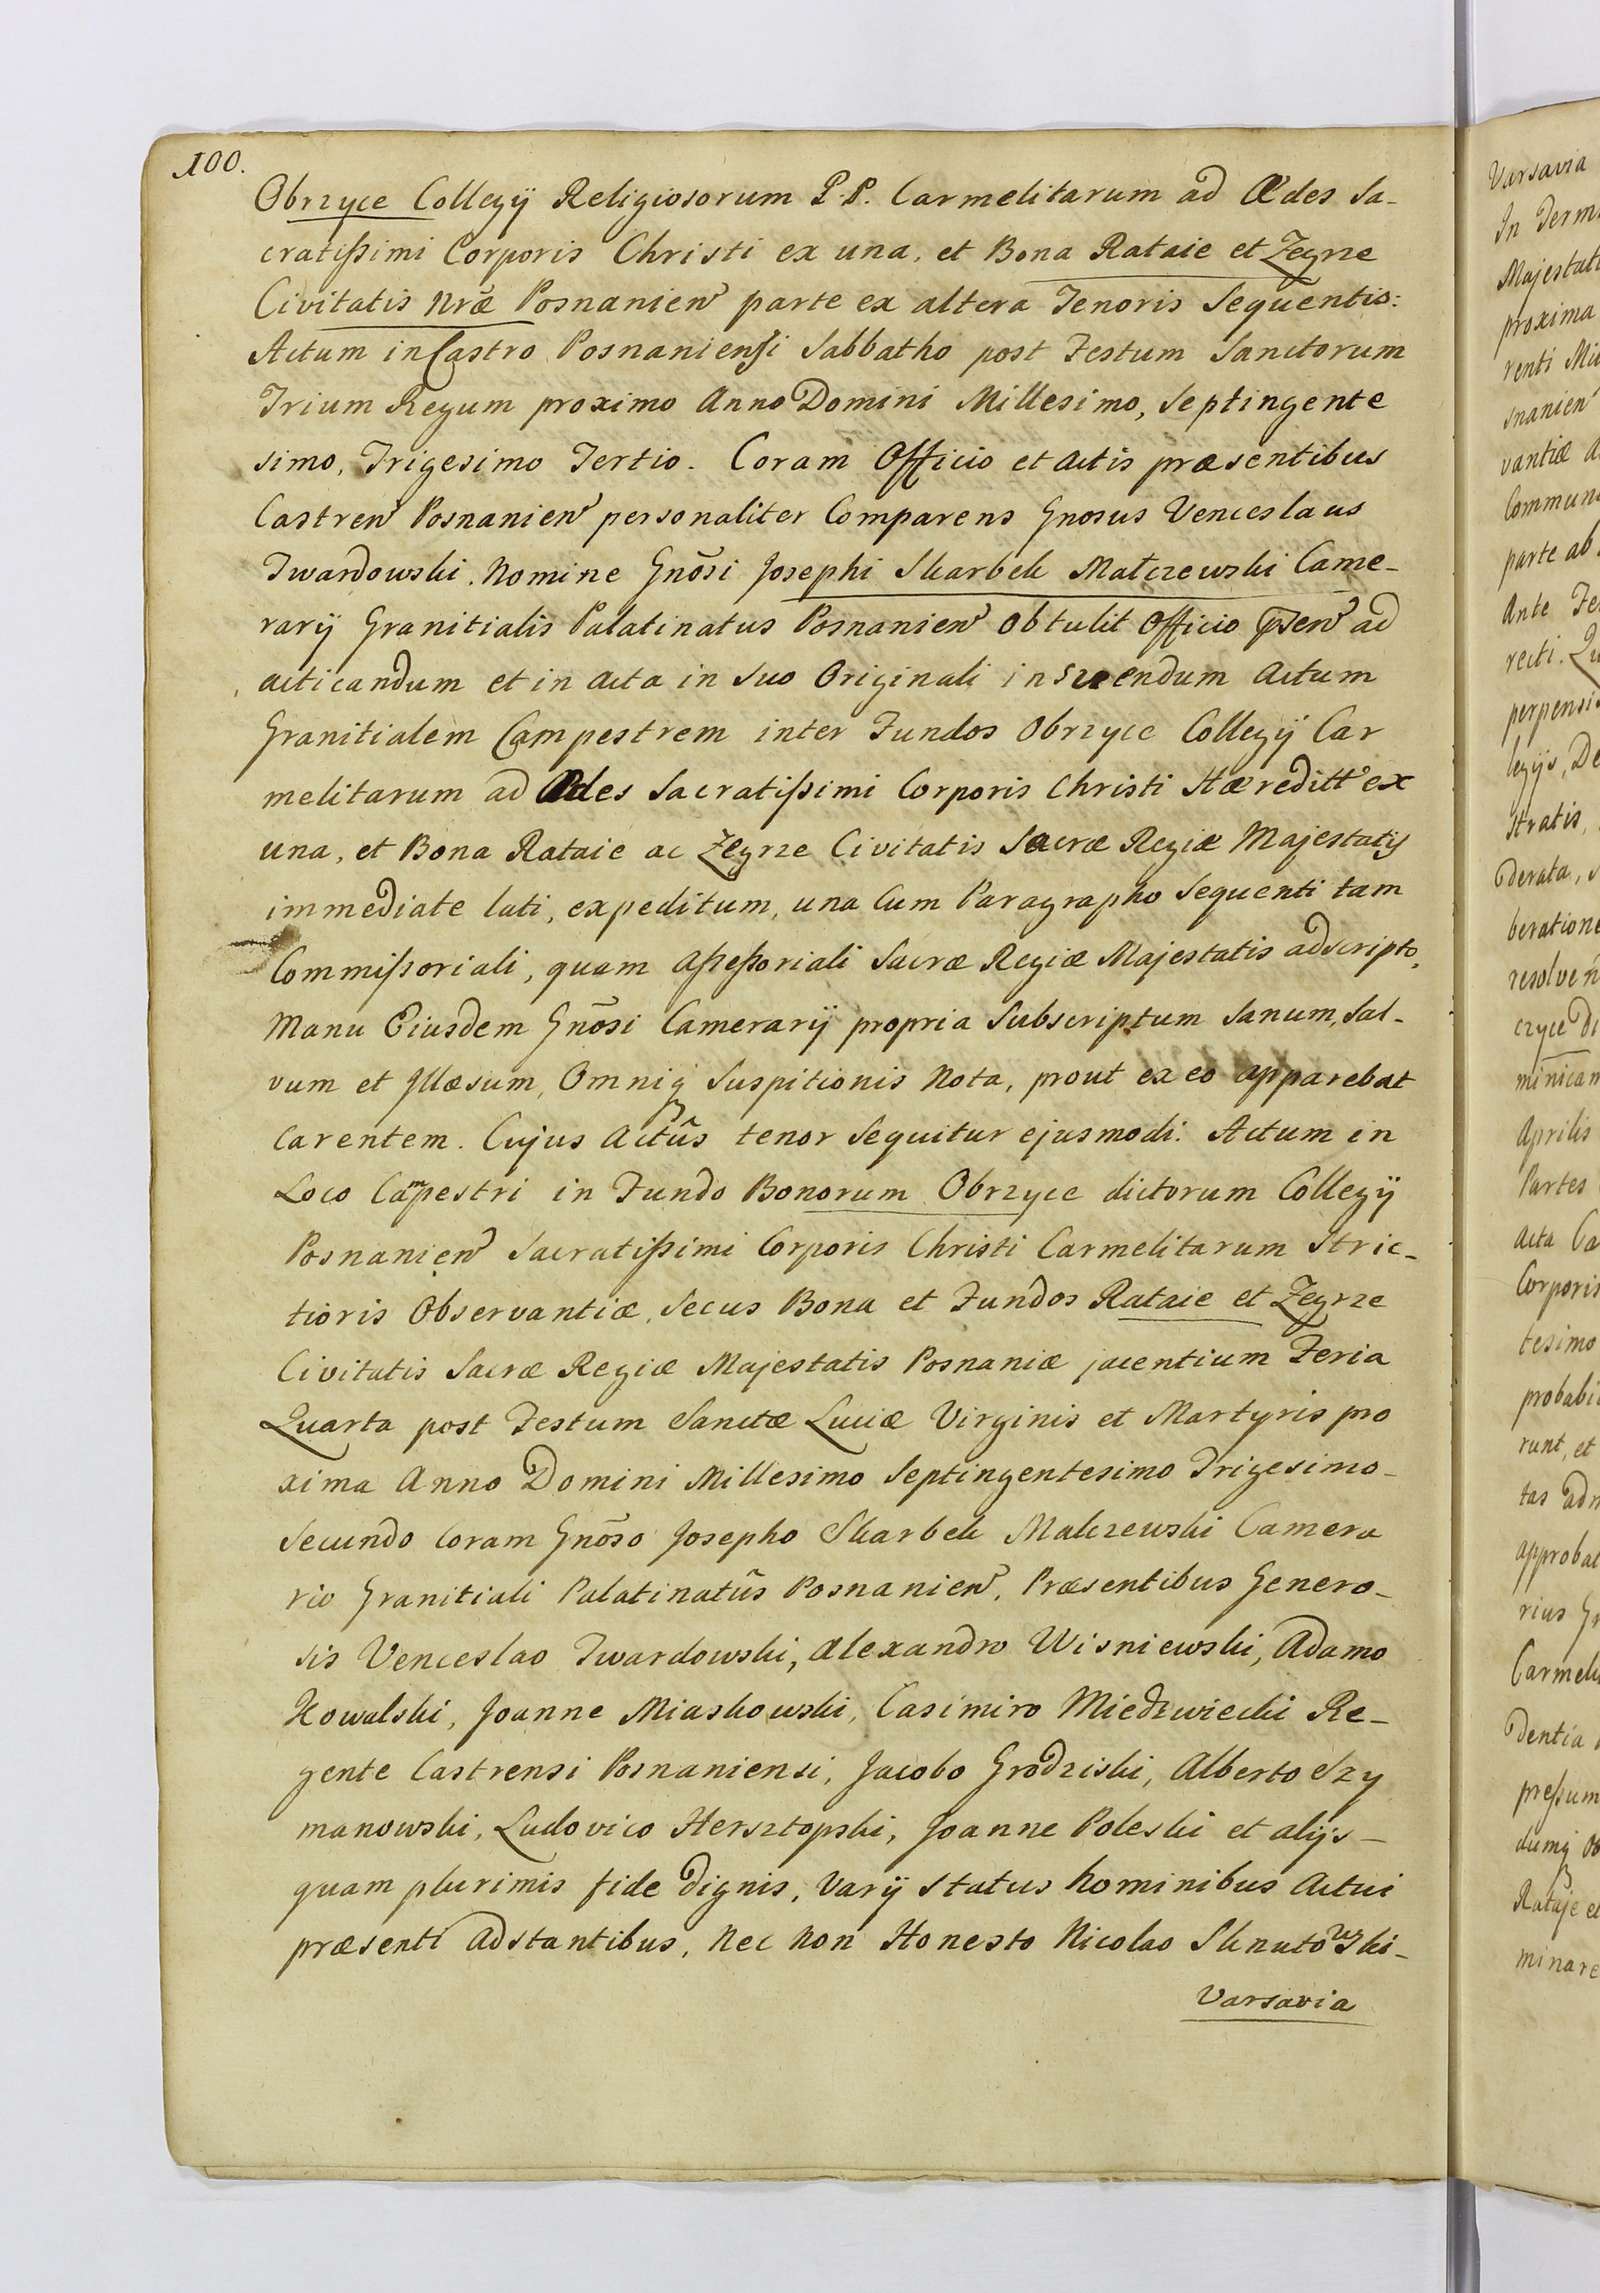 100.
Obrzyce Collegÿ Religiosorum P.P. Carmelitarum ad Ædes Sa-
cratissimi Corporis Christi ex una, et Bona Rataie et Zegrze
Civitatis Nrã Posnanien parte ex altera Tenoris Sequentis:
Actum in Castro Posnaniensi Sabbatho post Festum Sanctorum
Trium Regum proximo Anno Domini Millesimo, Septingente
simo, Trigesimo Tertio. Coram Officio et actis præsentibus
Castren Posnanien personaliter Comparens Gnosus Venceslaus
Twardowski. Nomine Gnõsi Josephi Skarbek Malczewski Came-
rarÿ Granitialis Palatinatus Posnanien obtulit Officio pñen ad
acticandum et in acta in suo Originali inserendum Actum
Granitialem Campestrem inter Fundos Obrzyce Collegÿ Car
melitarum ad Ædes Sacratissimi Corporis Christi Hæreditt ex
una, et Bona Rataie ac Zegrze Civitatis Sacræ Regiæ Majestatis
immediate lati, expeditum, una Cum Paragrapho Sequenti tam
Commissoriali, quam Assessoriali Sacræ Regiæ Majestatis adscripto,
Manu Eiusdem Gnõsi Camerarÿ propria Subscriptum Sanum, Sal-
vum et Illæsum, Omniq Suspitionis Nota, prout ex eo apparebat
Carentem. Cujus Actûs tenor Sequitur ejusmodi. Actum in
Loco Campestri in Fundo Bonorum Obrzyce dictorum Collegÿ
Posnanien Sacratissimi Corporis Christi Carmelitarum Stric-
tioris Observantiæ, Secus Bona et Fundos Rataie et Zegrze
Civitatis Sacræ Regiæ Majestatis Posnaniæ jacentium Feria
Quarta post Festum Sanctæ Luciæ Virginis et Martyris pro
xima Anno Domini Millesimo Septingentesimo Trigesimo-
Secundo Coram Gnõso Josepho Skarbek Malczewski Camera
rio Granitiali Palatinatûs Posnanien, Præsentibus Genero-
sis Venceslao Twardowski, Alexandro Wisniewski, Adamo
Kowalski, Joanne Miaskowski, Casimiro Miedzwiecki Re-
gente Castrensi Posnaniensi, Jacobo Grodziski, Alberto Szy
manowski, Ludovico Hersztopski, Joanne Poleski et alÿs-
quam plurimis fide dignis, Varÿ Status hominibus Actui
præsenti adstantibus, Nec Non Honesto Nicolao Sknutowski-
Varsavia
Varsavia
Majestati
proxima
renti
snanien
vantiæ
parte ab
Ante
recti.
stratis,
derata,
Aprilis
Partes
acta
Corporis
tesimo
runt, et
rius
dentia
Rataje et